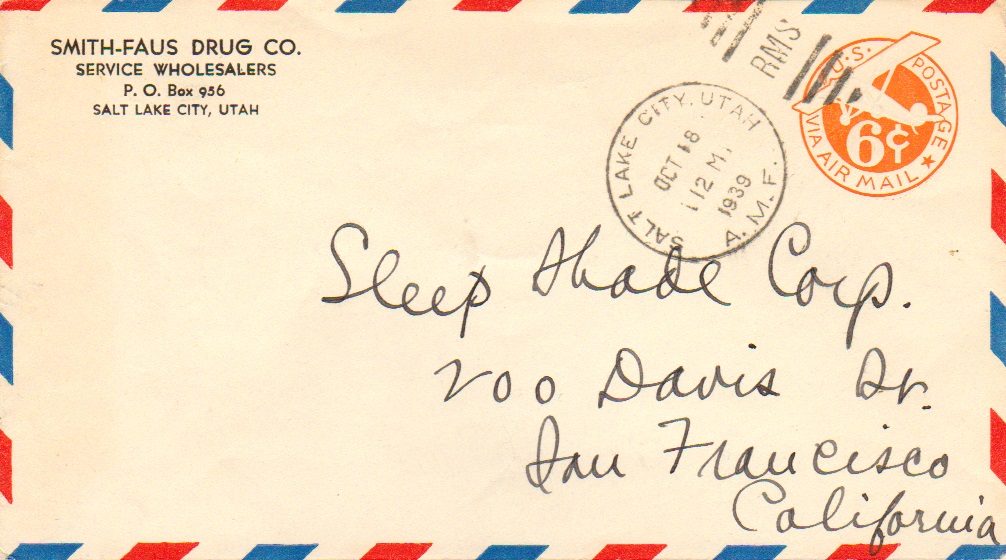 SMITH-FAUS DRUG CO.
SERVICE WHOLESALERS
P. O. Box 956
SALT LAKE CITY, UTAH
RMS
U.S. POSTAGE
6¢
VIA AIR MAIL
SALT LAKE CITY, UTAH
OCT 18
12 M.
1939
A.M.F.
Sleep Shade Corp.
200 Davis St.
San Francisco
California